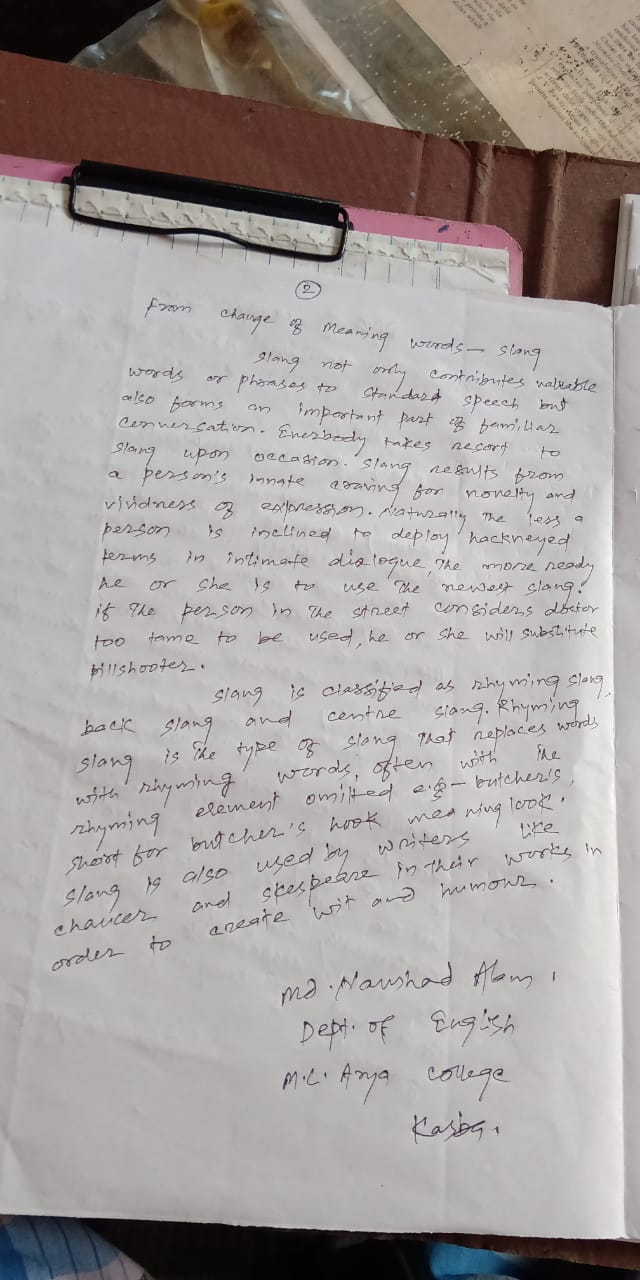 2
from change of Meaning words - slang
Slang not only contributes valuable
words or phrases to standard speech but
also forms an important part of familiar
conversation. Everbody takes resort to
slang upon occasion. Slang results from
a person's innate craving for novelty and
vividness of expression. Naturally the less a
person is inclined to deploy hackneyed
terms in intimate dialogue, the more ready
he or she is to use the newest slang.
if the person in the street considers doctor
too tame to be used, he or she will substitute
pillshooter.
Slang is classified as rhyming slang,
back slang and centre slang. Rhyming
slang is the type of slang that replaces words
with rhyming words, often with the
rhyming element omitted e.g - butcher's,
short for butcher's hook meaning look.
Slang is also used by writers like
chaucer and skespeare in their works in
order to create wit and humour.
Md. Naushad Alam.
Dept. of English
M.L. Arya College
Kasba.